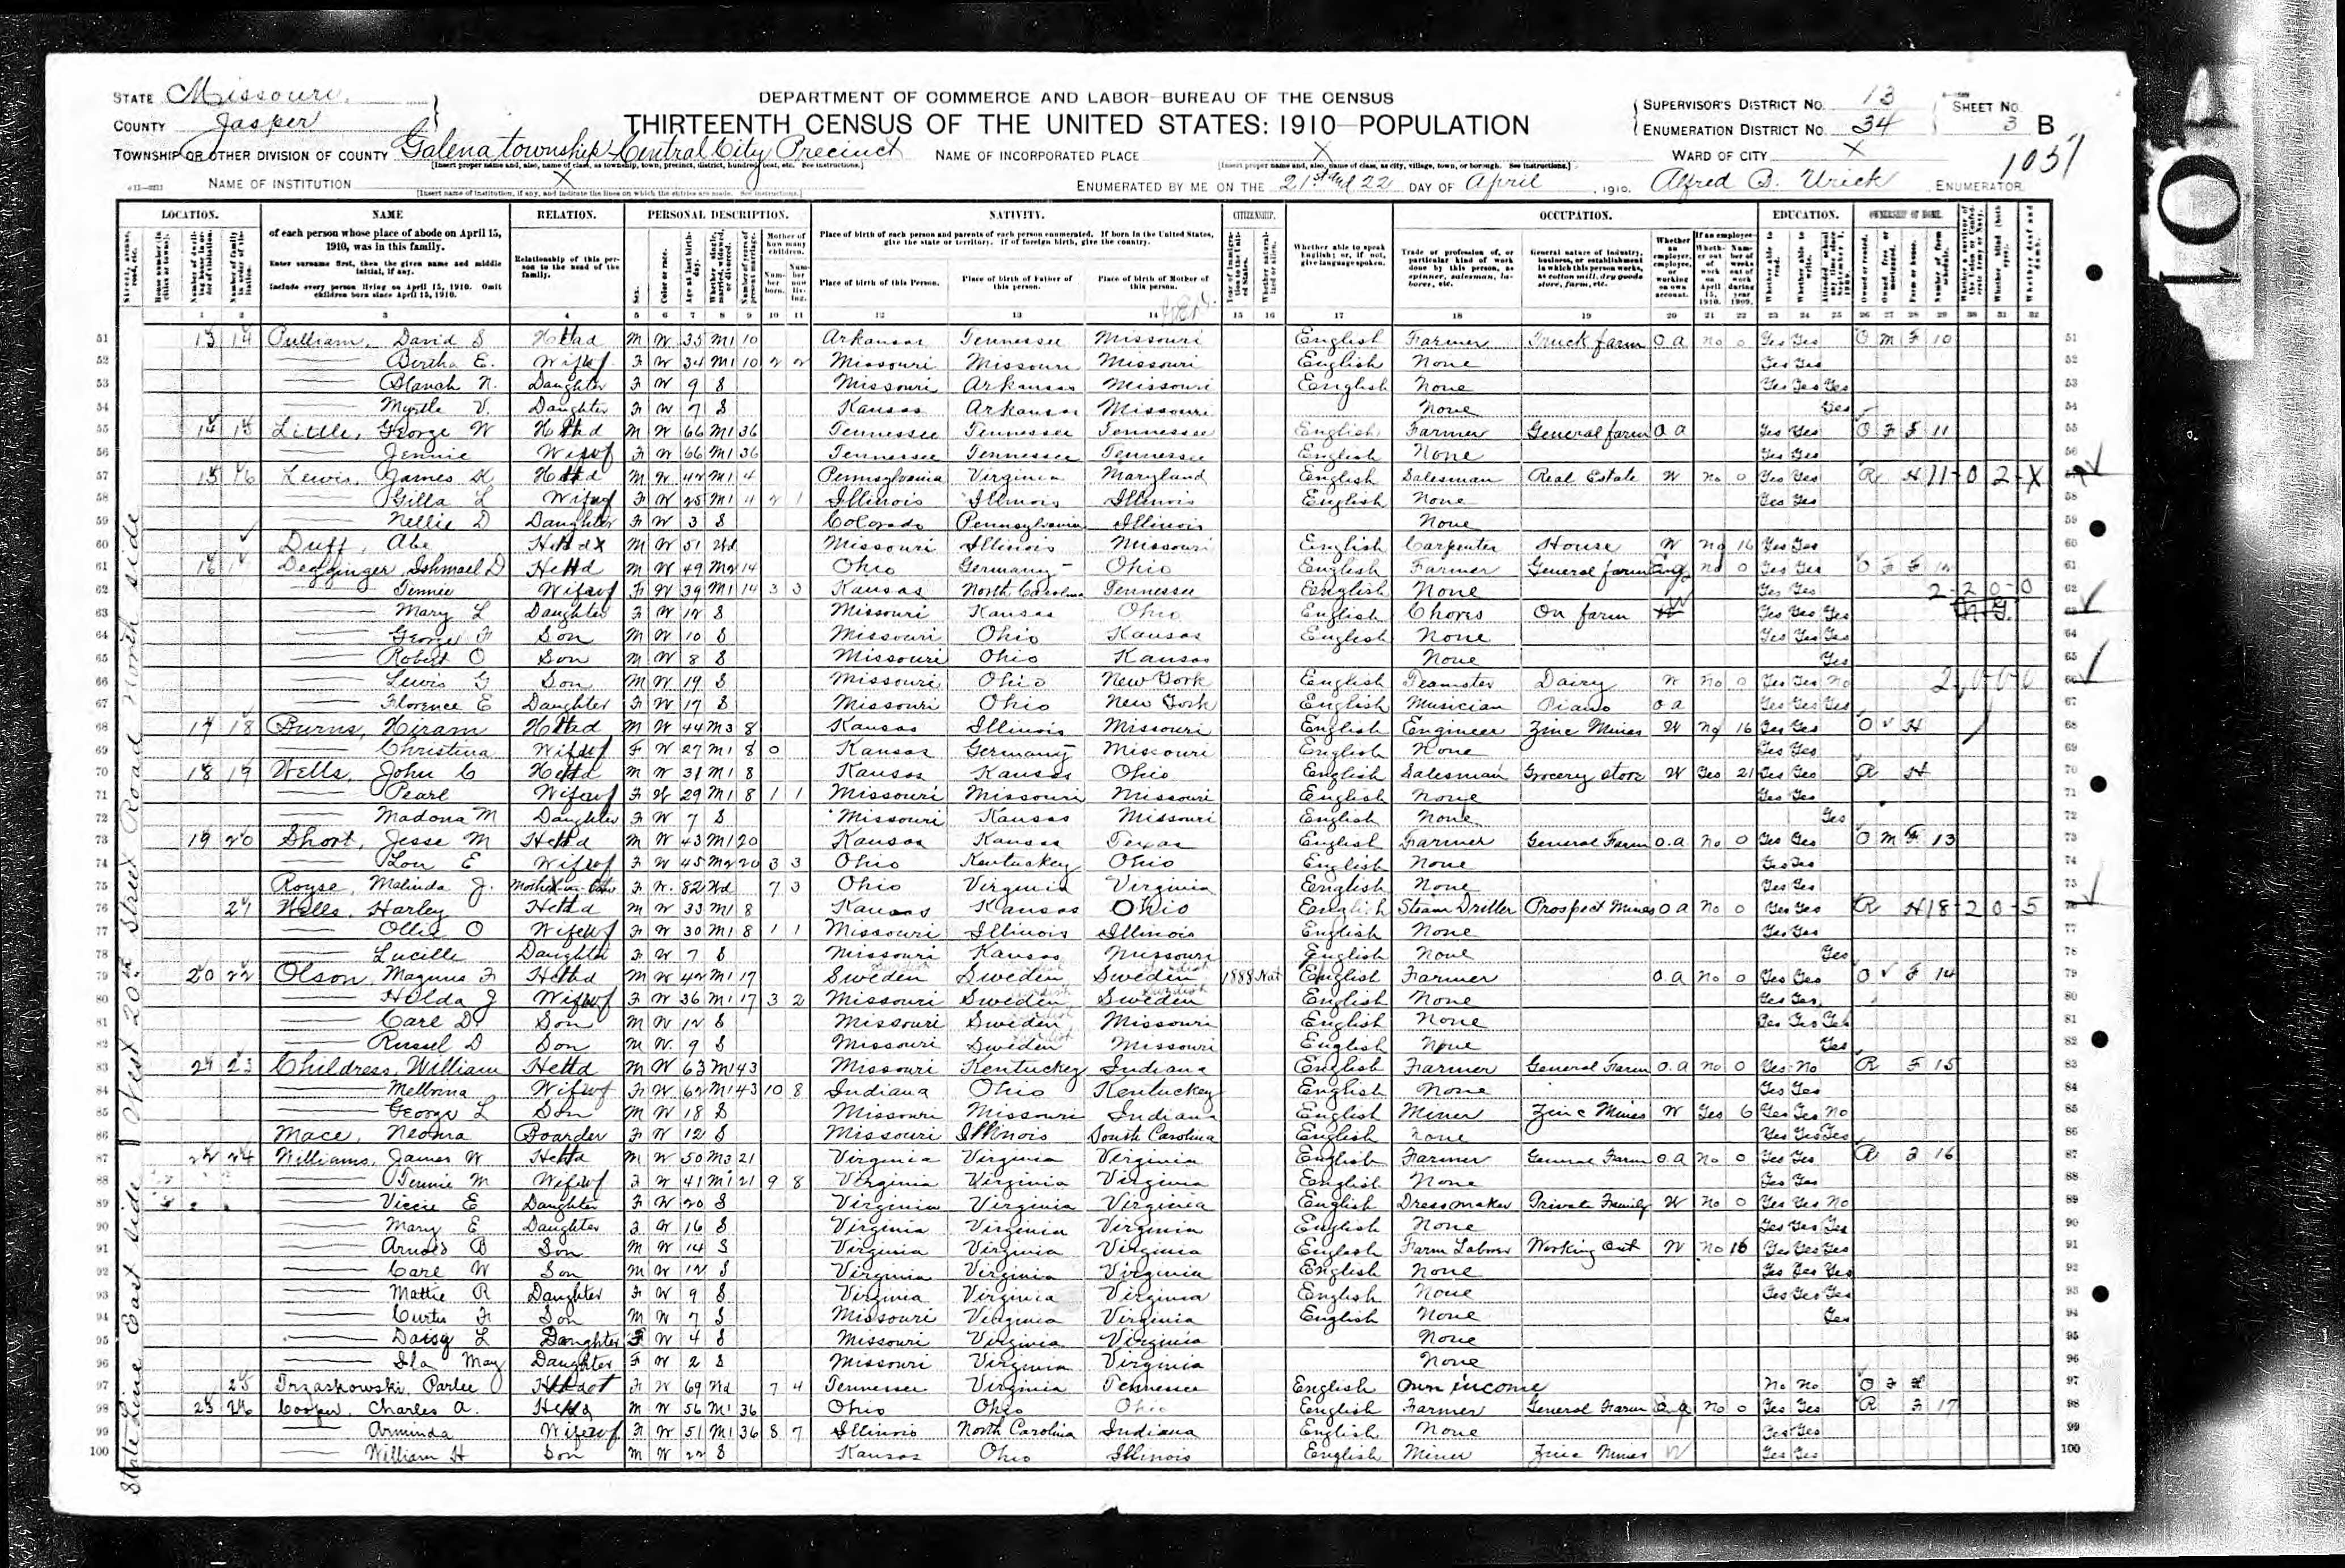 STATE Missouri
COUNTY Jasper
TOWNSHIP OR OTHER DIVISION OF COUNTY Galena township Central City Precinct
[Insert proper name and, also, name of class, as township, town, precinct, district, hundred, beat, etc. See instructions.]
NAME OF INSTITUTION X
[Insert name of institution, if any, and indicate the lines on which the entries are made. See instructions.]
DEPARTMENT OF COMMERCE AND LABOR—BUREAU OF THE CENSUS
THIRTEENTH CENSUS OF THE UNITED STATES: 1910—POPULATION
NAME OF INCORPORATED PLACE X
[Insert proper name and, also, name of class, as city, village, town, or borough. See instructions.]
ENUMERATED BY ME ON THE 21st and 22 DAY OF April, 1910. Alfred B. Urick, ENUMERATOR
SUPERVISOR'S DISTRICT NO. 13
ENUMERATION DISTRICT NO. 34
SHEET NO. 3 B
WARD OF CITY X
LOCATION. NAME RELATION. PERSONAL DESCRIPTION. NATIVITY. CITIZENSHIP. OCCUPATION. EDUCATION. OWNERSHIP OF HOME.
of each person whose place of abode on April 15, 1910, was in this family.
Enter surname first, then the given name and middle initial, if any.
Include every person living on April 15, 1910. Omit children born since April 15, 1910.
Relationship of this person to the head of the family.
Place of birth of each person and parents of each person enumerated. If born in the United States, give the state or territory. If of foreign birth, give the country.
Place of birth of this Person. Place of birth of Father of this person. Place of birth of Mother of this person.
51 13 14 Pulliam, David S Head M W 35 M1 10 Arkansas Tennessee Missouri English Farmer Truck farm O A no 0 Yes Yes O M F 10
52 Bertha E. Wife F W 34 M1 10 2 2 Missouri Missouri Missouri English None Yes Yes
53 Blanch N. Daughter F W 9 S Missouri Arkansas Missouri English None Yes Yes Yes
54 Myrtle V. Daughter F W 7 S Kansas Arkansas Missouri None Yes
55 14 15 Little, George W Head M W 66 M1 36 Tennessee Tennessee Tennessee English Farmer General farm O A Yes Yes O F F 11
56 Jennie Wife F W 66 M1 36 Tennessee Tennessee Tennessee English None Yes Yes
57 15 16 Lewis, James K Head M W 42 M1 4 Pennsylvania Virginia Maryland English Salesman Real Estate W no 0 Yes Yes R H
58 Gilla L Wife F W 25 M1 4 2 1 Illinois Illinois Illinois English None Yes Yes
59 Nellie D Daughter F W 3 S Colorado Pennsylvania Illinois None
60 Duff, Abe Head M W 51 Wd Missouri Illinois Missouri English Carpenter House W no 16 Yes Yes
61 16 Degginger, Ishmael D Head M W 49 M2 14 Ohio Germany Ohio English Farmer General farm Emp no 0 Yes Yes O F F 12
62 Jennie Wife F W 39 M1 14 3 3 Kansas North Carolina Tennessee English None Yes Yes
63 Mary L Daughter F W 12 S Missouri Kansas Ohio English Chores On farm W Yes Yes Yes
64 George F Son M W 10 S Missouri Ohio Kansas English None Yes Yes Yes
65 Robert O Son M W 8 S Missouri Ohio Kansas None Yes
66 Lewis G Son M W 19 S Missouri Ohio New York English Teamster Dairy W no 0 Yes Yes No
67 Florence E Daughter F W 17 S Missouri Ohio New York English Musician Piano O A Yes Yes Yes
68 17 18 Burns, Hiram Head M W 44 M3 8 Kansas Illinois Missouri English Engineer Zinc Mines W no 16 Yes Yes O H
69 Christina Wife F W 27 M1 8 0 Kansas Germany Missouri English None Yes Yes
70 18 19 Wells, John C Head M W 31 M1 8 Kansas Kansas Ohio English Salesman Grocery store W Yes 21 Yes Yes R H
71 Pearl Wife F W 29 M1 8 1 1 Missouri Missouri Missouri English None Yes Yes
72 Madona M Daughter F W 7 S Missouri Kansas Missouri English None Yes
73 19 20 Short, Jesse M Head M W 43 M1 20 Kansas Kansas Texas English Farmer General Farm O.A No 0 Yes Yes O M F 13
74 Lou E Wife F W 45 M2 20 3 3 Ohio Kentucky Ohio English None Yes Yes
75 Royse, Malinda J. Mother-in-law F W 82 Wd 7 3 Ohio Virginia Virginia English None Yes Yes
76 21 Wells, Harley Head M W 33 M1 8 Kansas Kansas Ohio English Steam Driller Prospect Mines O A No 0 Yes Yes R H
77 Ollie O Wife F W 30 M1 8 1 1 Missouri Illinois Illinois English None Yes Yes
78 Lucille Daughter F W 7 S Missouri Kansas Missouri English None Yes
79 20 22 Olson, Magnus F Head M W 42 M1 17 Sweden Sweden Sweden 1888 Nat English Farmer O A No 0 Yes Yes O F 14
80 Holda J Wife F W 36 M1 17 3 2 Missouri Sweden Sweden English None Yes Yes
81 Carl D Son M W 12 S Missouri Sweden Missouri English None Yes Yes Yes
82 Russel D Son M W 9 S Missouri Sweden Missouri English None Yes
83 21 23 Childress, William Head M W 63 M1 43 Missouri Kentucky Indiana English Farmer General Farm O.A No 0 Yes No R F 15
84 Mellvina Wife F W 62 M1 43 10 8 Indiana Ohio Kentucky English None Yes Yes
85 George L Son M W 18 S Missouri Missouri Indiana English Miner Zinc Mines W Yes 6 Yes Yes No
86 Mace, Neoma Boarder F W 12 S Missouri Illinois South Carolina English None Yes Yes Yes
87 22 24 Williams, James W Head M W 50 M3 21 Virginia Virginia Virginia English Farmer General Farm O A No 0 Yes Yes R F 16
88 Jennie M Wife F W 41 M1 21 9 8 Virginia Virginia Virginia English None Yes Yes
89 Viccie E Daughter F W 20 S Virginia Virginia Virginia English Dressmaker Private Family W No 0 Yes Yes No
90 Mary E Daughter F W 16 S Virginia Virginia Virginia English None Yes Yes Yes
91 Arnold B Son M W 14 S Virginia Virginia Virginia English Farm Labor Working Out W No 16 Yes Yes Yes
92 Carl W Son M W 12 S Virginia Virginia Virginia English None Yes Yes Yes
93 Mattie R Daughter F W 9 S Virginia Virginia Virginia English None Yes Yes Yes
94 Curtis F Son M W 7 S Missouri Virginia Virginia English None Yes
95 Daisy L Daughter F W 4 S Missouri Virginia Virginia None
96 Ila May Daughter F W 2 S Missouri Virginia Virginia None
97 25 Trzaskowski, Parlee Head F W 69 Wd 7 4 Tennessee Virginia Tennessee English Own income No No O F
98 23 26 Cooper, Charles A. Head M W 56 M1 36 Ohio Ohio Ohio English Farmer General Farm O A No 0 Yes Yes R F 17
99 Arminda Wife F W 51 M1 36 8 7 Illinois North Carolina Indiana English None Yes Yes
100 William H Son M W 22 S Kansas Ohio Illinois English Miner Zinc Mines W Yes Yes
State Line East side West 20th Street Road North side
101